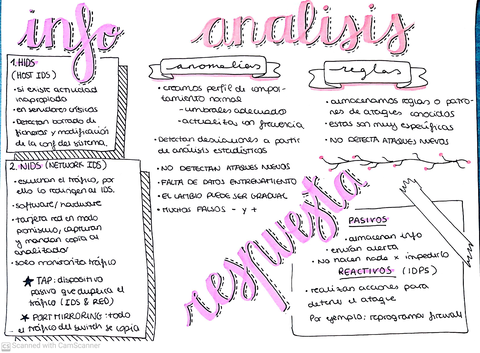 info
1. HIDS
(HOST IDS)
• si existe actividad
inapropiada
• en servidores críticos
• Detectan borrado de
ficheros y modificación
de la conf del sistema.
2. NIDS (NETWORK IDS)
• escuchan el tráfico, por
ello lo redirigen al IDS.
• software/hardware
• tarjeta red en modo
promiscuo, capturan
y mandan copia al
analizador
• solo monitoriza tráfico
★ TAP: dispositivo
pasivo que duplica el
tráfico (IDS & RED)
★ PORT MIRRORING: todo
el tráfico del switch se copia
analisis
anomalías
• creamos perfil de compor-
tamiento normal
- umbrales adecuados
- actualizar con frecuencia
• Detectan desviaciones a partir
de análisis estadísticos
• NO DETECTAN ATAQUES NUEVOS
• FALTA DE DATOS ENTRENAMIENTO
• EL CAMBIO PUEDE SER GRADUAL
• MUCHOS FALSOS - y +
reglas
• almacenamos reglas o patro-
nes de ataques conocidos
• estas son muy específicas
• NO DETECTA ATAQUES NUEVOS
respuesta
PASIVOS
• almacenan info
• envían alerta
• No hacen nada x impedirlo
REACTIVOS (IDPS)
• realizan acciones para
detener el ataque
Por ejemplo: reprogramar firewall
CS Scanned with CamScanner